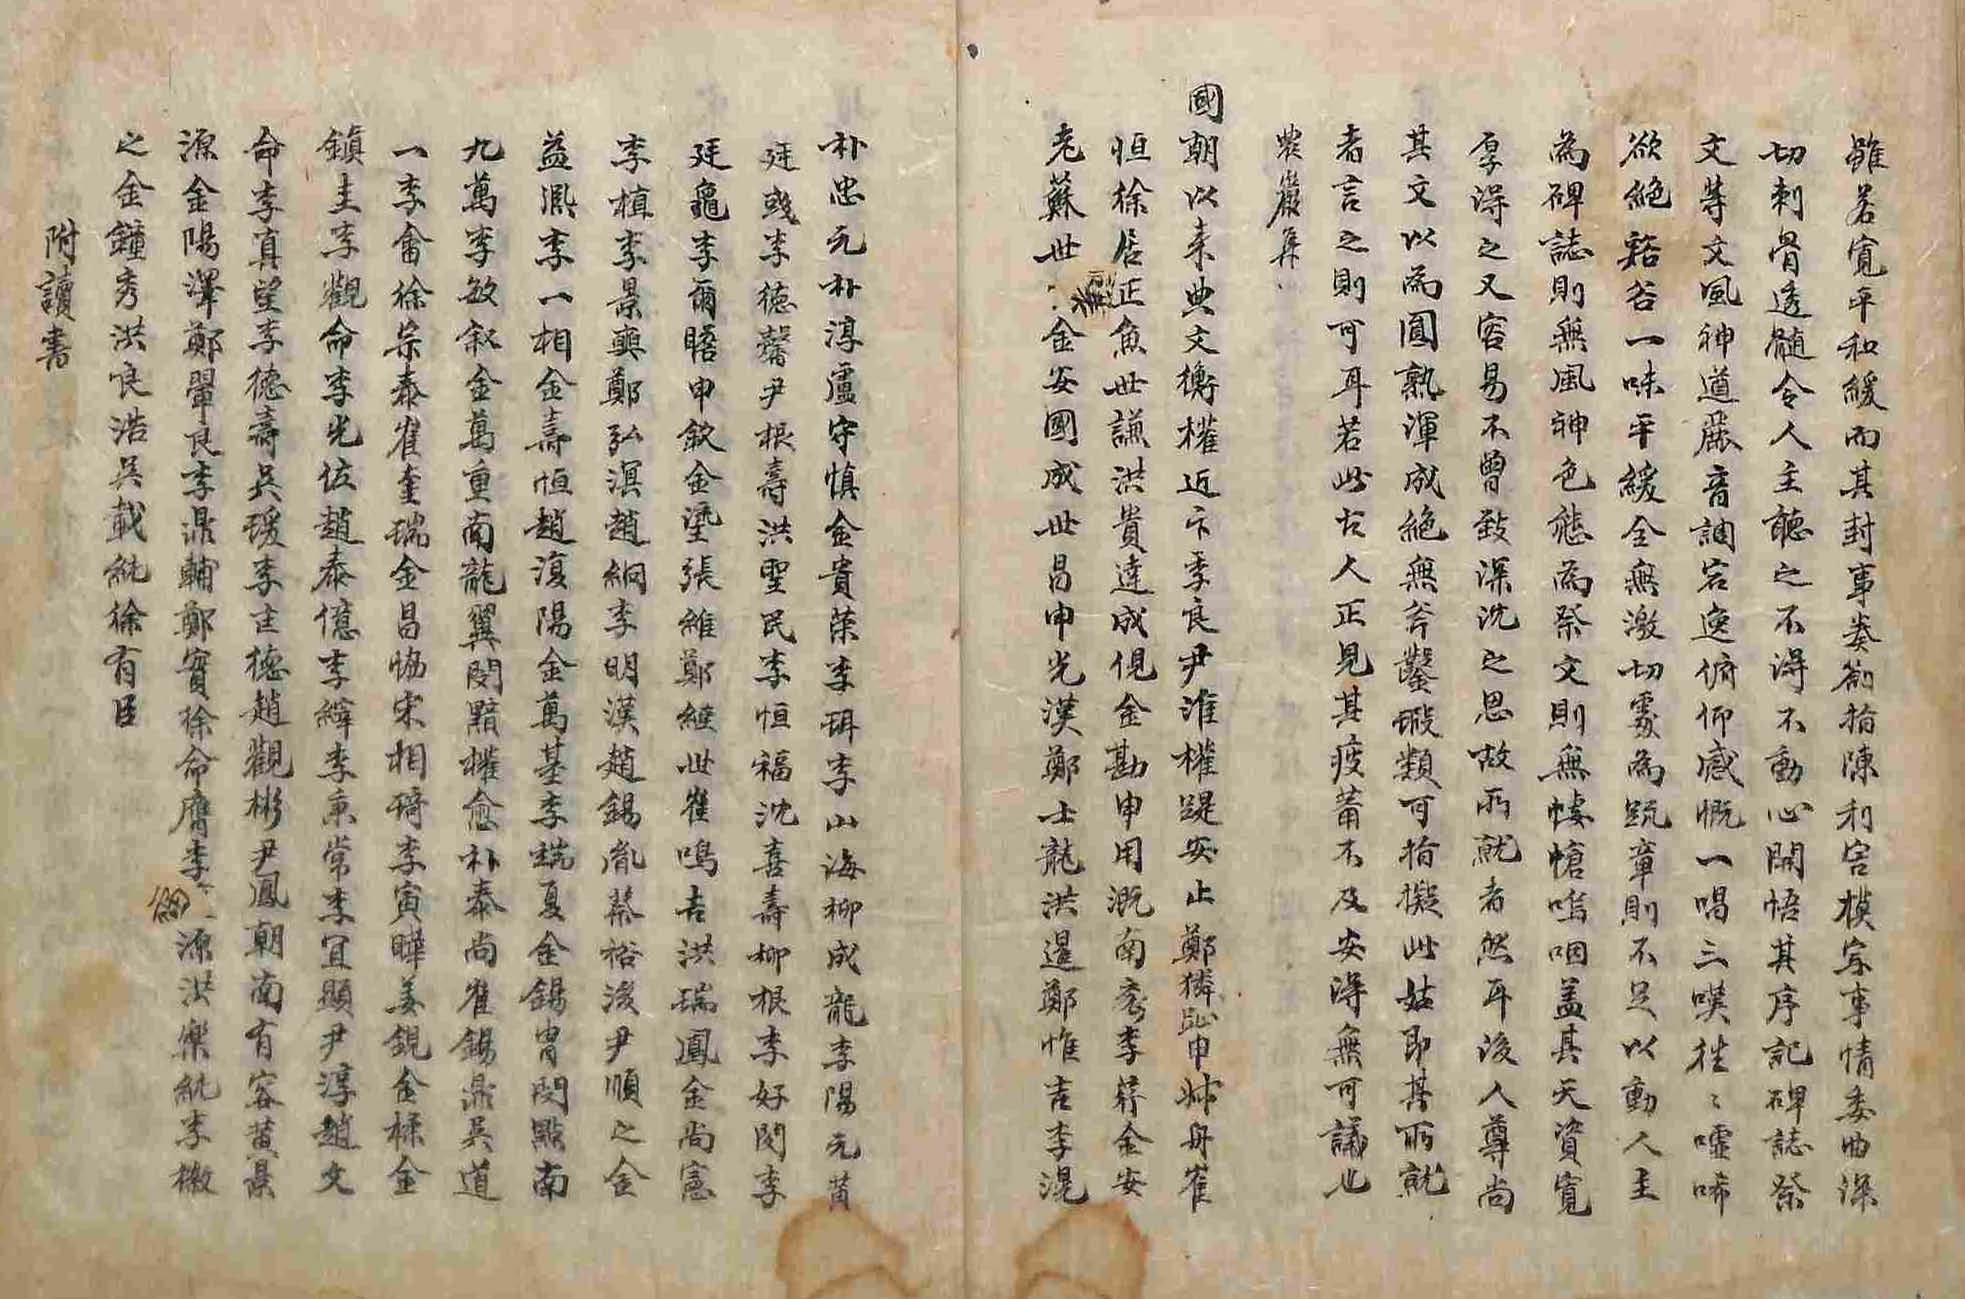 雖若寬平和緩而其封事奏箚指陳利害模寫事情委曲深
切刺骨透髓令人主聽之不得不動心開悟其序記碑誌祭
文等文風神道麗音調宕逸俯仰感慨一唱三嘆往〻噓唏
欲絕谿谷一味平緩全無激切處為疏章則不足以動人主
為碑誌則無風神色態為祭文則無悽愴嗚咽盖其天資寬
厚得之又容易不曾致深沈之思故所就者然耳後人尊尚
其文以為圓熟渾成絕無斧鑿瑕類可指擬此姑即其所就
者言之則可耳若此古人正見其疲薾不及安得無可議也
農巖集
國朝以来典文衡權近卞季良尹淮權踶安止鄭獜趾申叔舟崔
恒徐居正魚世謙洪貴達成俔金勘申用漑南袞李荇金安
老蘇世讓金安國成世昌申光漢鄭士龍洪暹鄭惟吉李滉
朴忠元朴淳盧守慎金貴榮李珥李山海柳成龍李陽元黃
廷彧李德馨尹根壽洪聖民李恒福沈喜壽柳根李好閔李
廷龜李爾瞻申欽金瑬張維鄭經世崔鳴吉洪瑞鳳金尚憲
李植李景奭鄭弘溟趙絅李明漢趙錫胤蔡裕後尹順之金
益凞李一相金壽恒趙復陽金萬基李端夏金錫胄閔點南
九萬李敏叙金萬重南龍翼閔黯權愈朴泰尚崔錫鼎吳道
一李畬徐宗泰崔奎瑞金昌協宋相琦李寅曄姜鋧金楺金
鎮圭李觀命李光佐趙泰億李縡李秉常李宜顯尹淳趙文
命李真望李德壽吳瑗李主德趙觀彬尹鳳朝南有容黃景
源金陽澤鄭翬良李鼎輔鄭實徐命膺李溆源洪樂純李徽
之金鐘秀洪良浩吳載純徐有臣
附讀書